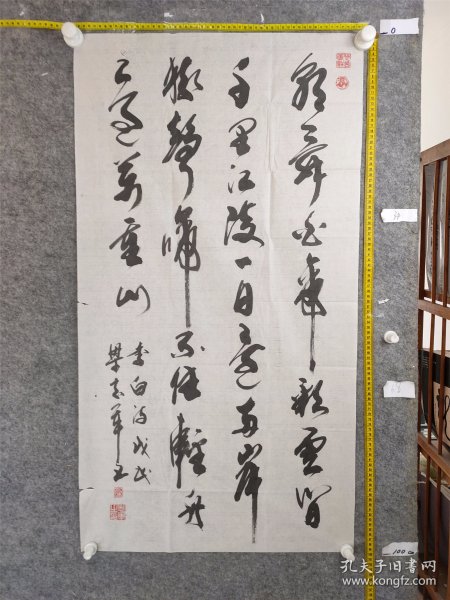 朝辞白帝彩雲间
千里江陵一日還两岸
猿聲啼不住輕舟
已過萬重山
李白诗戊戌
志军书
0
50
100cm
孔夫子旧书网
www.kongfz.com